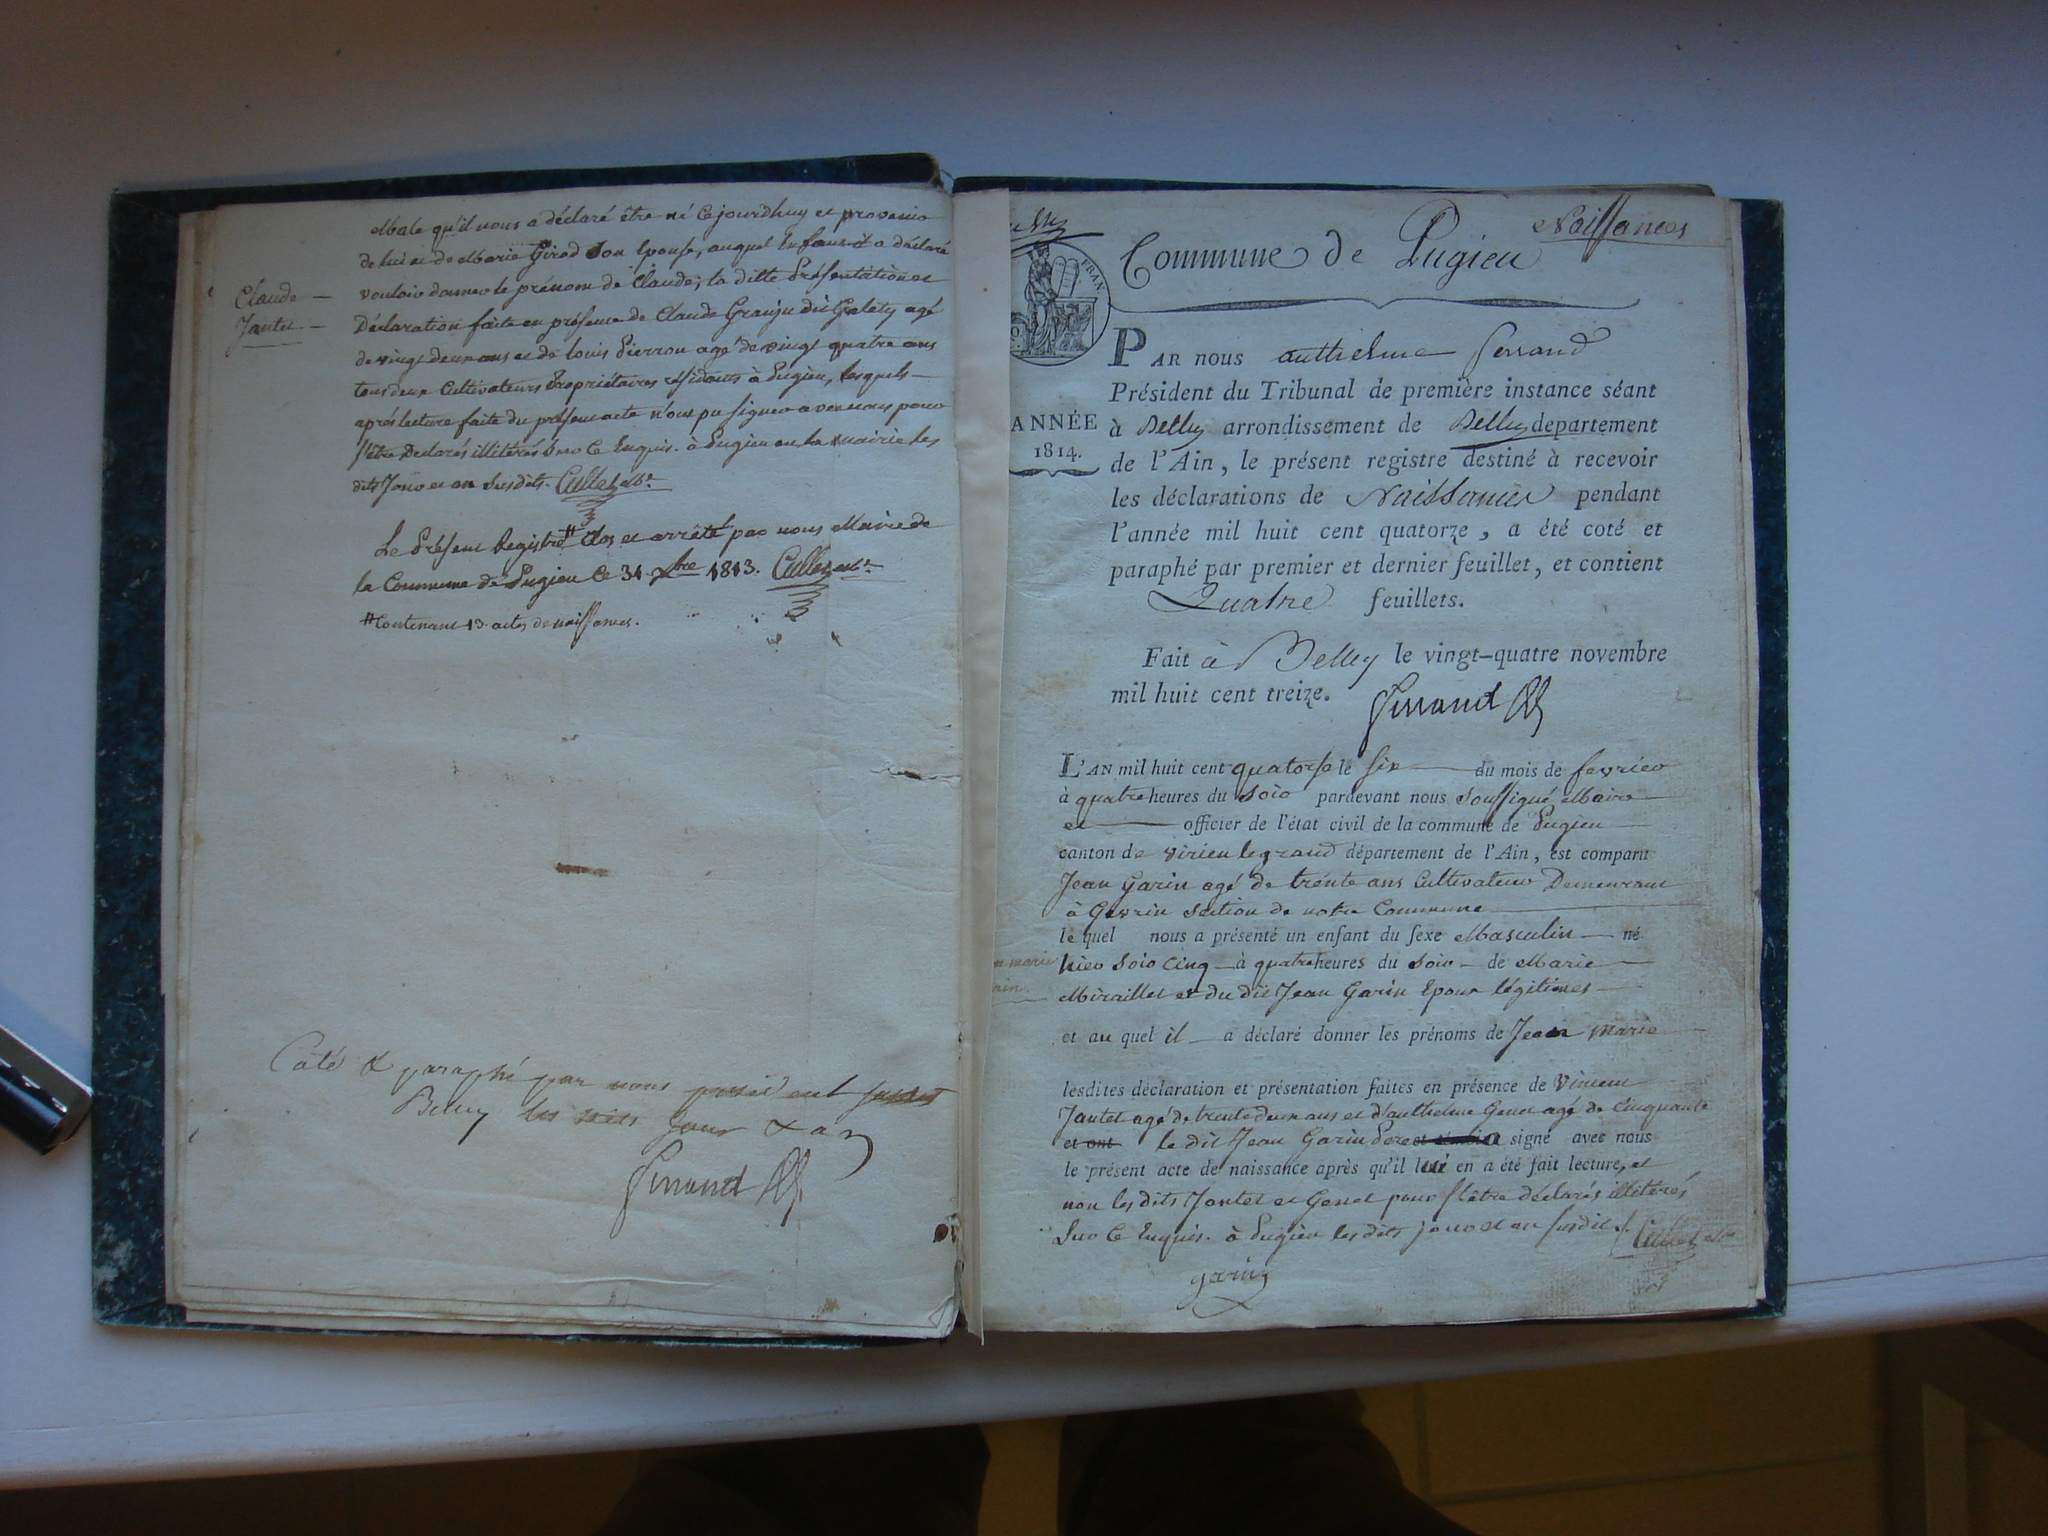 Mâle qu'il nous a déclaré être né cejourdhuy et provenir
de lui et de Marie Girod Son Epouse, auquel Enfant il a déclaré
vouloir donner le prénom de Claude; la ditte Présentation et
Claude
Jantet
Déclaration faite en présence de Claude Granju dit Galety agé
de vingt deux ans et de louis Pierron agé de vingt quatre ans
tous deux Cultivateurs Propriétaires résidants à Pugieu, lesquels
après lecture faite du présent acte n'ont pu signer avec nous pour
s'être Déclarés illitérés Sur Ce Enquis. à Pugieu en la Mairie les
dits Jour et an Susdits. Cullet
Le Présent Registre # Clos et arrêté par nous Maire de
la Commune de Pugieu Ce 31 xbre 1813. Cullet
# Contenant 13 actes de naissances.
Coté & paraphé par nous président
Belley les dits jour & an
Ferrand
Naissances
Commune de Pugieu
FRAN.
ANNÉE
1814.
PAR nous anthelme ferrand
Président du Tribunal de première instance séant
à Belley arrondissement de Belley departement
de l'Ain, le présent registre destiné à recevoir
les déclarations de Naissances pendant
l'année mil huit cent quatorze, a été coté et
paraphé par premier et dernier feuillet, et contient
Quatre feuillets.
Fait à Belley le vingt-quatre novembre
mil huit cent treize. Ferrand
L'AN mil huit cent quatorse le six du mois de fevrier
à quatre heures du Soir pardevant nous Soussigné Maire
et officier de l'état civil de la commune de Pugieu
canton de virieu legrand département de l'Ain, est comparu
Jean Garin agé de trente ans Cultivateur Demeurant
à Gevrin Section de notre Commune
le quel nous a présenté un enfant du sexe Masculin né
hier Soir Cinq à quatre heures du Soir de Marie
Miraillet et du dit Jean Garin Epoux légitimes
et au quel il a déclaré donner les prénoms de Jean Marie
lesdites déclaration et présentation faites en présence de Vincent
Jantet agé de trente deux ans et d'anthelme Genet agé de Cinquante
et ont le dit Jean Garin Pere a signé avec nous
le présent acte de naissance après qu'il lui en a été fait lecture, et
non les dits Jantet et Genet pour s'être déclarés illitérés
Sur Ce Enquis. à Pugieu les dits jour et an susdits. Cullet
garin